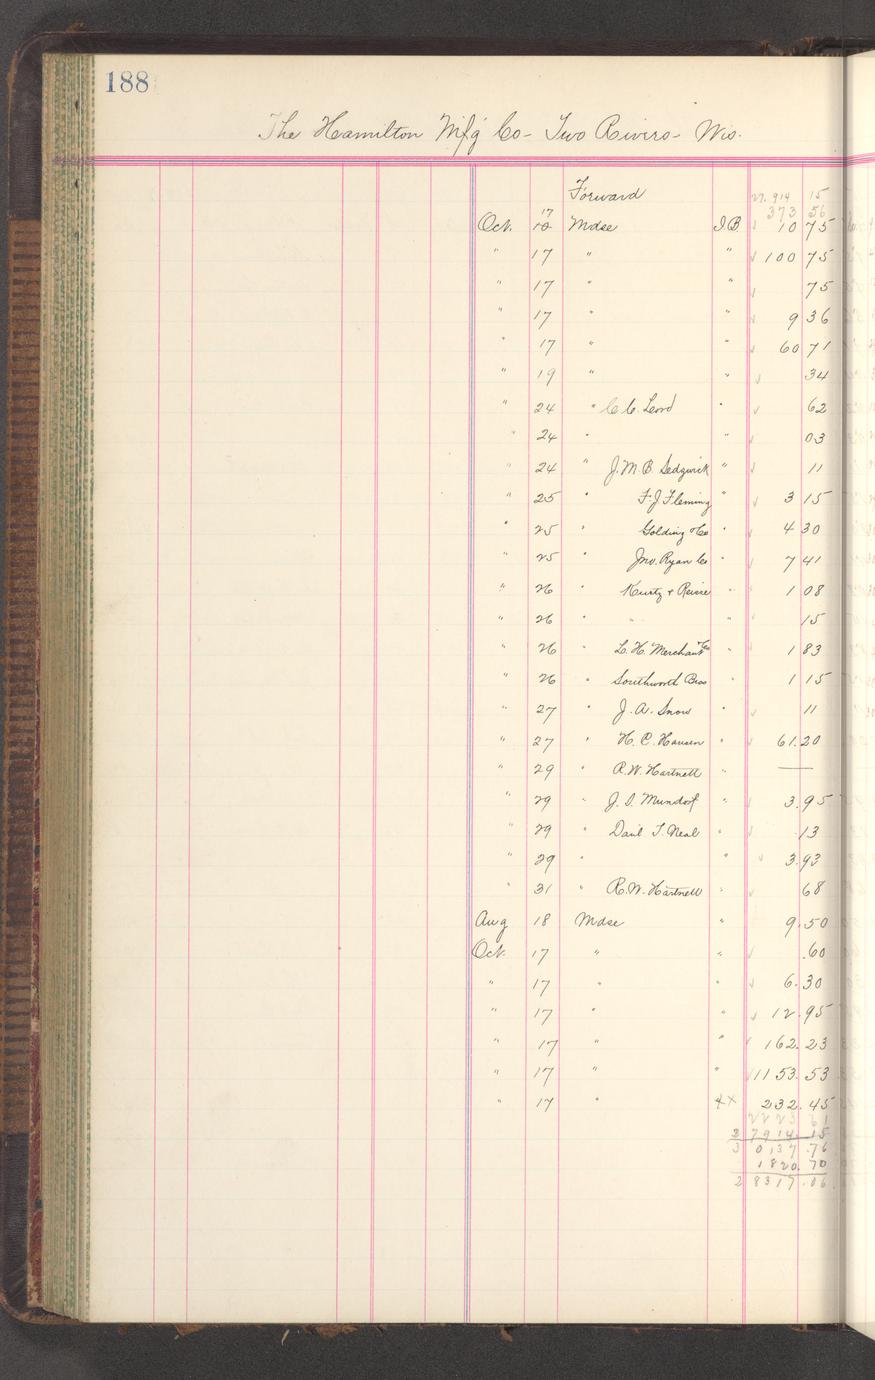 188
The Hamilton Mfg Co - Two Rivers - Wis.
Forward 27.914 15
373 56
17
Oct. 18 Mdse I.B √ 10 75
" 17 " " √ 100 75
" 17 " " √ 75
" 17 " " √ 9 36
" 17 " " √ 60 71
" 19 " " √ 34
" 24 " C.C. " √ 62
" 24 " " √ 03
" 24 " J.M.B. Sedgwick " √ 11
" 25 " F.J. Fleming " √ 3 15
" 25 " Golding & Co " √ 4 30
" 25 " Jno. Ryan Co " √ 7 41
" 26 " Kurtz & " √ 1 08
" 26 " " " √ 15
" 26 " L.H. Merchant Co " √ 1 83
" 26 " Southworth Bros " √ 1 15
" 27 " J.A. Snow " √ 11
" 27 " H.C. Hansen " √ 61.20
" 29 " R.W. Hartnett " —
" 29 " J.D. Mundorf " √ 3.95
" 29 " Danl T. Neal " √ .13
" 29 " " √ 3.93
" 31 " R.W. Hartnett " √ 68
Aug 18 Mdse " 9.50
Oct. 17 " " √ .60
" 17 " " √ 6.30
" 17 " " √ 12.95
" 17 " " √ 162.23
" 17 " " √ 1153.53
" 17 " ** 232.45
2223 61
2 7914.15
3 0137.76
1820.70
2 8317.06